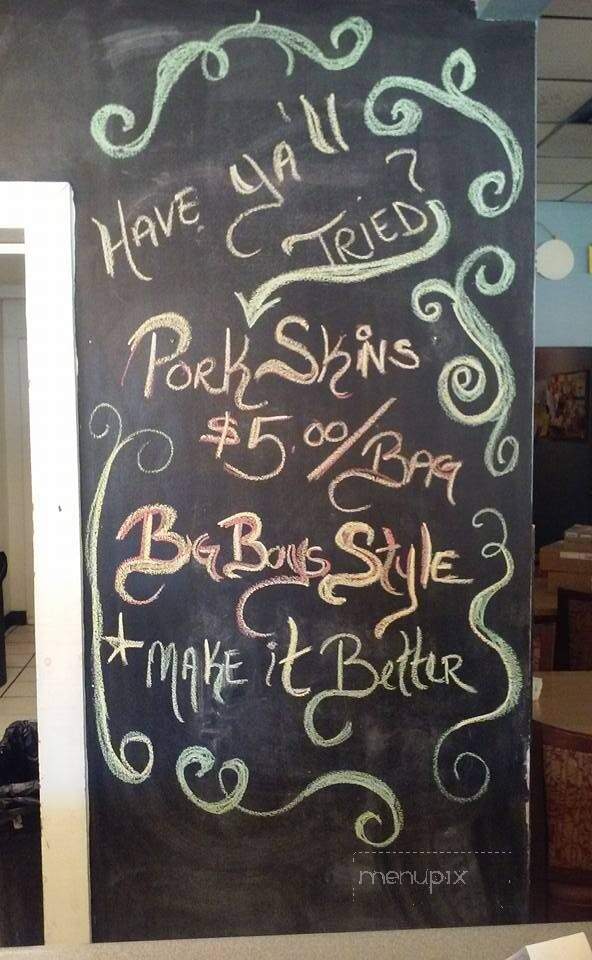 HAVE YA'll
TRIED?
PORK SKiNS
$5.00/BAG
BIG BOYS STYLE
*MAKE it BettER
menupix